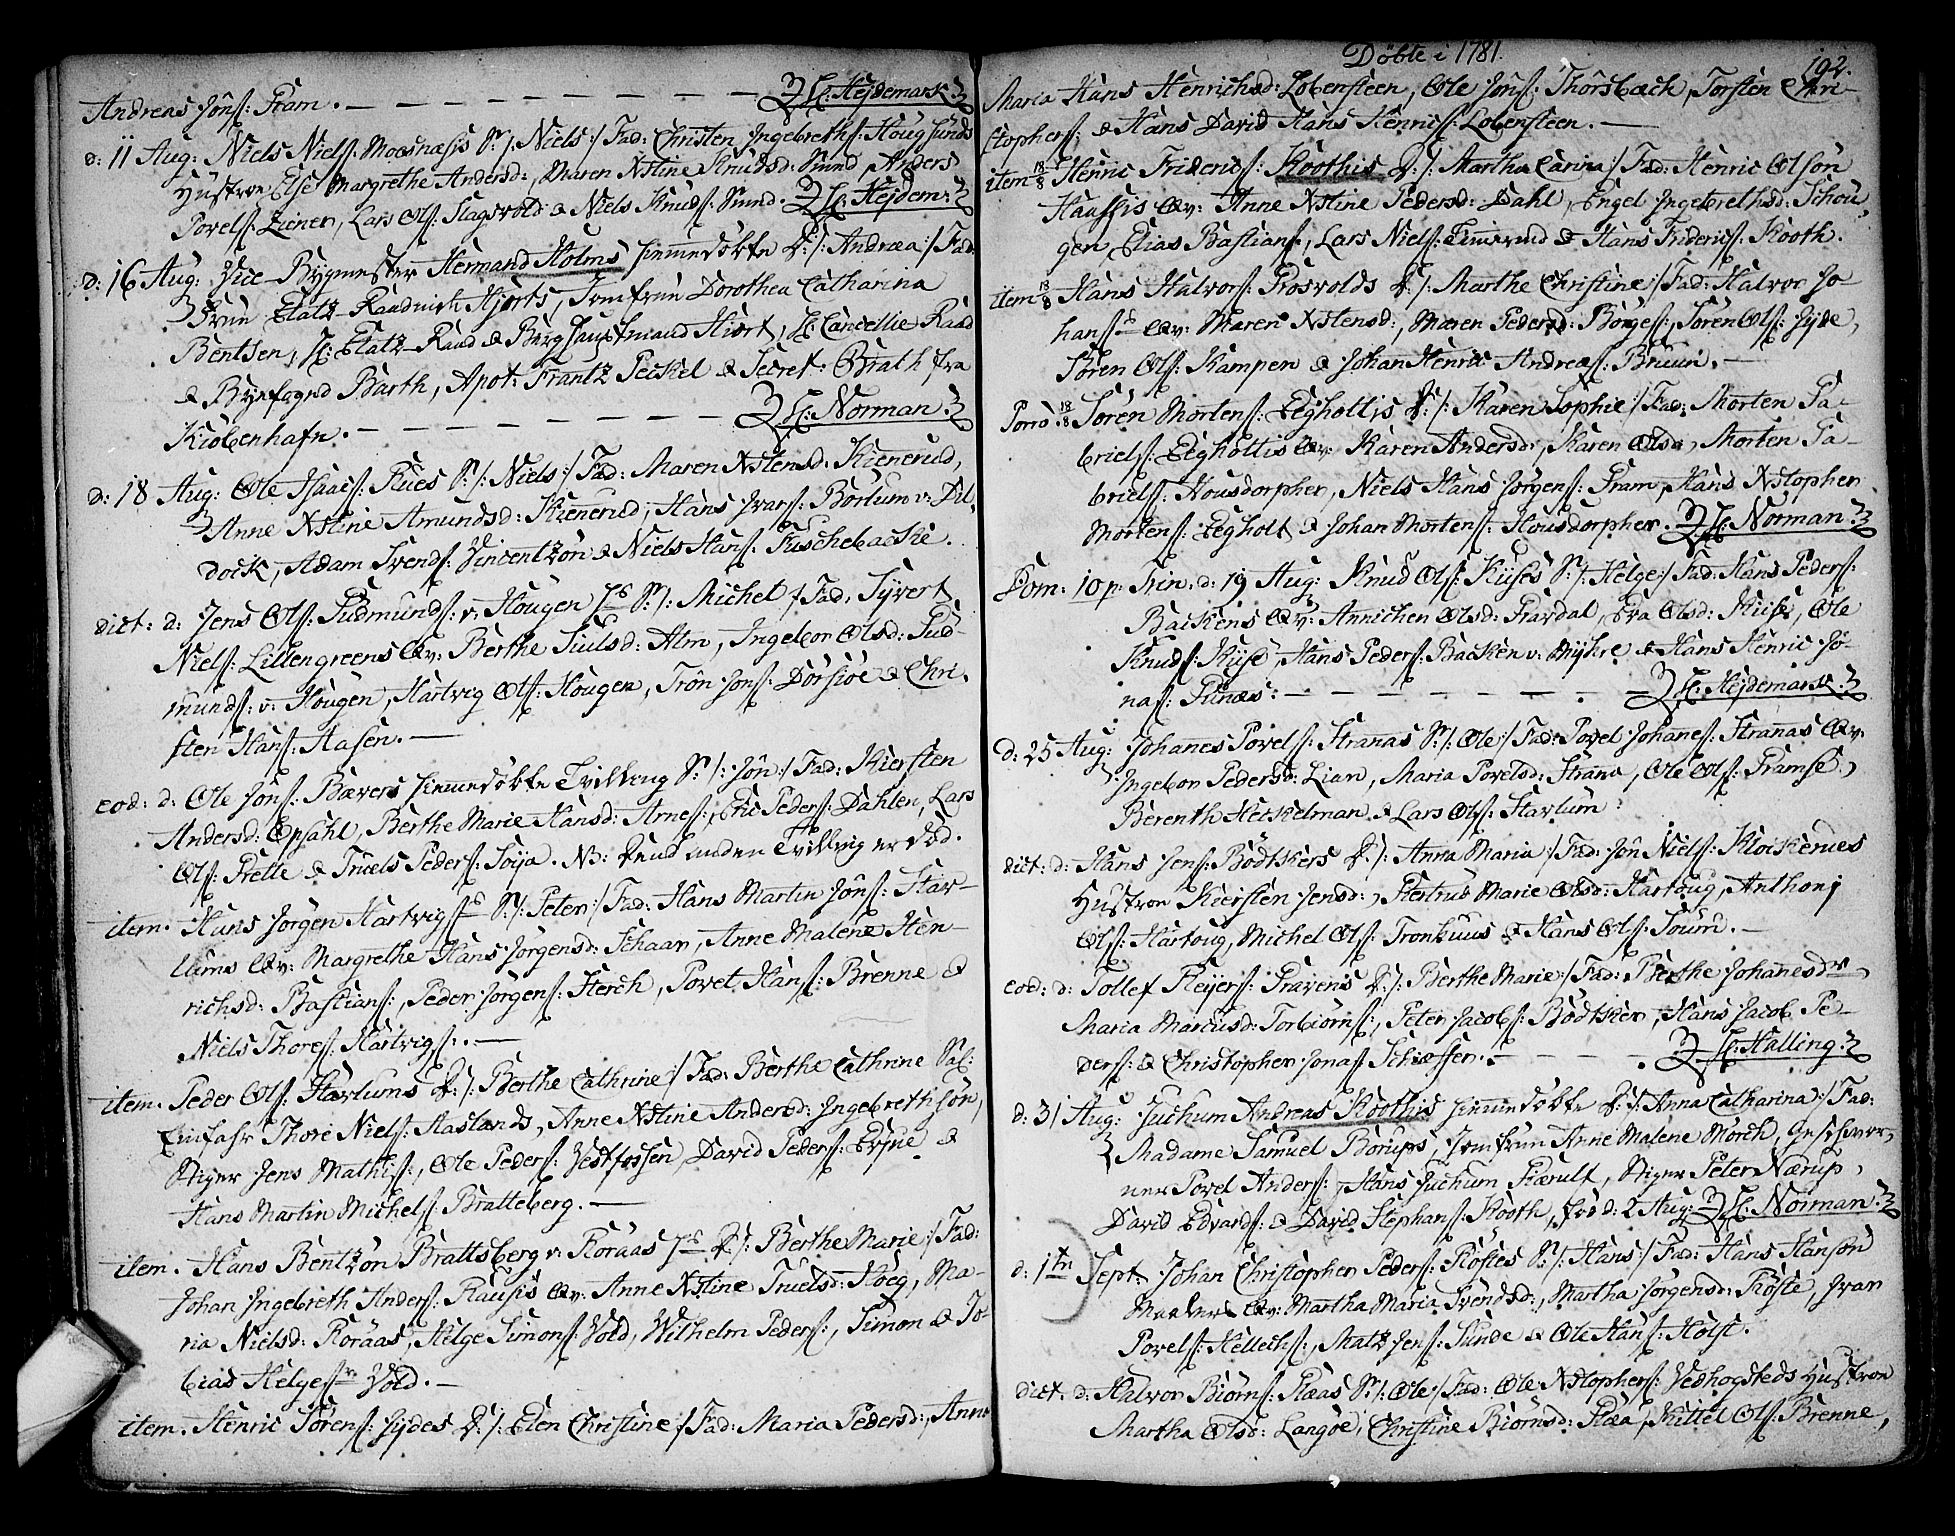 Andreas Jôns: Fram. — — — — — — — — H: Heydemark.
d: 11 Aug: Niels Niels: Moesnæsis S: /: Niels :/ Fad: Christen Ingebreths: Hougsunds
Hustroe Else Margrethe Andersd:, Maren Xstine Knudsd: Sund, Anders
Povels: Ziener, Lars Ols: Slagsvold & Niels Knuds: Sund. H: Heydem:
d: 16 Aug: Vice-Bygmester Hermand Holms hiemmedöbte D: /: Andræa :/ Fad:
Frue Etatz-Raadinde Hjorts, Jomfrue Dorothea Catharina
Bentsen, H: Etatz-Raad & Berghauptmand Hiort, H: Cancellie Raad
& Byefogud Barth, Apot: Frantz Peckel & Secret: Brath fra
Kiöbenhafn. — — — — — — — H: Norman.
d: 18 Aug: Ole Isaacs: Rues S: /: Niels :/ Fad: Maren Xstensd: Kienerud,
Anne Xstine Amundsd: Kienerud, Hans Ivars: Borlum v: Dil-
dock, Adam Svends: Vincentzôn & Niels Hans: Fuschebacke.
dict: d: Jens Ols: Gudmunds: v: Hougen S: /: Michel :/ Fad: Syvert
Niels: Lillengreens Qv: Berthe Siulsd: Alm, Ingebor Olsd: Gud-
munds: v: Hougen, Hartvig Ols: Hougen, Trôn Jons: Dôrsiöe & Chri-
sten Hans: Aasen. —
eod: d: Ole Jôns: Bævers hiemmedöbte Tvilling S: /: Jôn :/ Fad: Kiersten
Andersd: Opsahl, Berthe Marie Hansd: Arnes:, Eric Peders: Dahlen, Lars
Ols: Prette & Truels Peders: Soija. NB: dend anden Tvilling er död.
item. Hans Jorgen Hartvigs: S: /: Peter :/ Fad: Hans Martin Jôns: Star-
lums Qv: Margrethe Hans Jörgensd: Schaar, Anne Malene Hen-
richsd: Bastians:, Peder Jörgens: Sterch, Povel Hans: Brenne &
Niels Thores: Hartvigs:. —
item. Peder Ols: Harlums D: /: Berthe Cathrine :/ Fad: Berthe Cathrine Sal:
Einfahr Thore Niels: Aaslands, Anne Xstine Andersd: Ingebrettsôn,
Stiger Jens Mathis:, Ole Peders: Vestfossen, David Peders: &
Hans Martin Michels: Bratteberg. —
item. Hans Bentzôn Brattsberg v: Floraas D: /: Berthe Marie :/ Fad:
Johan Ingebreth Anders: Rausis Qv: Anne Xstine Truelsd: Hoeg, Ma-
ria Nielsd: Floraas, Helge Simons: Vold, Wilhelm Peders:, Simon & To-
bias Helges: Vold. —
item. Henric Sörens: Hydes D: /: Elen Christine :/ Fad: Maria Pedersd:, Anne
Döbte i 1781. 192.
Maria Hans Henrichsd: Lobensteen, Ole Jôns: Thorsbæch, Torsten Chri-
stophers: & Hans David Hans Henrics: Lobensteen. —
item 18/8 Henric Friderics: Koothis D: /: Martha Carina :/ Fad: Henric Olsön
Haussis Qv: Anne Xstine Pedersd: Dahl, Engel Ingebrethsd: Schou-
gen Elias Bastians:, Lars Niels: Simerud & Hans Friderics: Kooth.
item 18/8 Hans Halvors: Prosvolds D: /: Marthe Christine :/ Fad: Halvor Jo-
hans: Qv: Maren Xstensd:, Maren Pedersd: Börges:, Sören Ols: Hyde,
Sören Ols: Kampen & Johan Henric Andreæs: Bruun. —
Porro 18/8 Sören Mortens: Eegholtis D: /: Karen Sophie :/ Fad: Morten Ga-
briels: Eegholtis Qv: Karen Andersd:, Karen Olsd:, Morten Ga-
briels: Housdorpher, Niels Hans Jörgens: Fram, Hans Xstopher
Mortens: Eegholt & Johan Mortens: Housdorpher. H: Norman.
Dom: 10 p: Trin: d: 19 Aug: Knud Ols: Kises S: /: Helge :/ Fad: Hans Peders:
Backens Qv: Annichen Olsd: Gardal, Eva Olsd: Kise, Ole
Knuds: Kise, Hans Peders: Backen v: Myhre & Hans Henric Jo-
nas: Funæs: — — — — — — — H: Heydemark.
d: 25 Aug: Johannes Povels: Strannas S: /: Ole :/ Fad: Povel Johannes: Strannas Qv:
Ingebor Pedersd: Lian, Maria Povelsd: Stranna, Ole Ols: Framse,
Berenth Heskelman & Lars Ols: Starlum:
dict: d: Hans Jens: Bödtkers D: /: Anna Maria :/ Fad: Jôn Niels: Kloikernes
Hustroe Kiersten Jensd:, Giertrud Marie Olsd: Hartoug, Anthonj
Ols: Hartoug, Michel Ols: Tronhuus & Hans Ols: Toum. —
eod: d: Tollef Reyers: Gravens D: /: Berthe Marie :/ Fad: Berthe Johannesdr,
Maria Marcusd: Torbiörns:, Peter Jacobs: Bödtker, Hans Jacob Pe-
ders: & Christopher Jonas: Schiæffer. — — — — H: Halling.
d: 31 Aug: Juchum Andreas Koothis hiemmedöbte D: /: Anna Catharina :/ Fad:
Madame Samuel Borups, Jomfrue Anne Malene Morch, Geschwor-
ner Povel Anders:, Hans Juchum Giærult, Stiger Peter Nærup,
David Edvards: & David Stephans: Kooth, föd d: 2 Aug: H: Norman.
d: 1ste Sept: Johan Christopher Peders: Röstes S: /: Hans :/ Fad: Hans Hansön
Qv: Martha Maria Svendsd:, Martha Jörgensd: Röste, Ivar
Povels: Hellechs:, Matz Jens: Sunde & Ole Hans: Holst.
dict: d: Halvor Biörns: Flaas S: /: Ole :/ Fad: Ole Xstophers: Vedhogsteds Hustroe
Martha Olsd: Langöe, Christine Biörnsd: Flaa, Kittel Ols: Brenne,